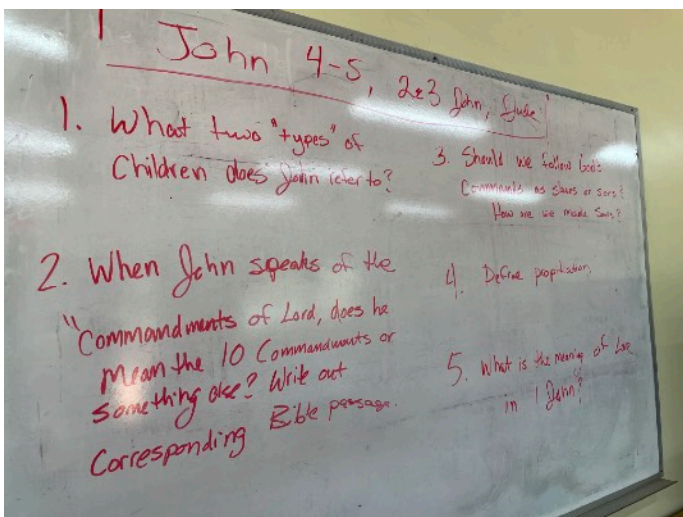 1 John 4-5, 2&3 John, Jude
1. What two "types" of
Children does John refer to?
2. When John speaks of the
"Commandments of Lord, does he
mean the 10 Commandments or
something else? Write out
Corresponding Bible passage.
3. Should we follow God's
Commands as slaves or sons?
How are we made Sons?
4. Define propitiation,
5. What is the meaning of Love
in 1 John?